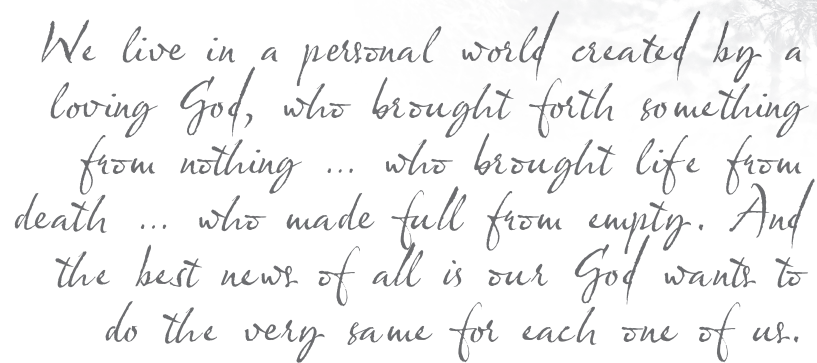 We live in a personal world created by a
loving God, who brought forth something
from nothing ... who brought life from
death ... who made full from empty. And
the best news of all is our God wants to
do the very same for each one of us.